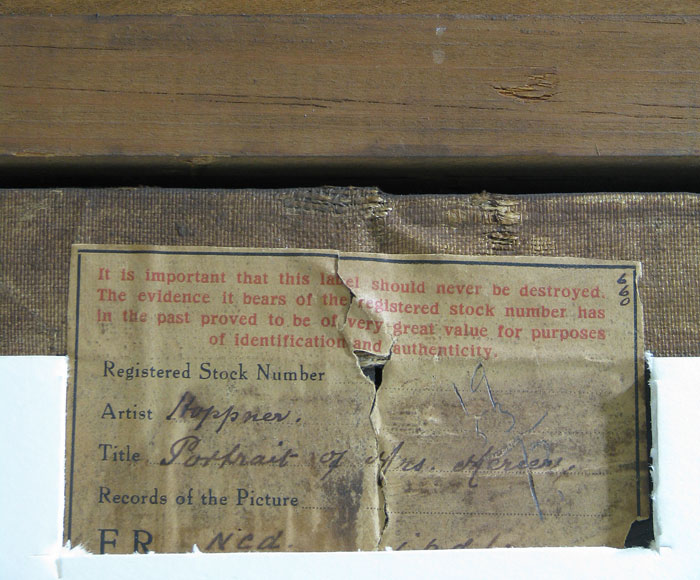 It is important that this label should never be destroyed.
The evidence it bears of the registered stock number has
in the past proved to be of very great value for purposes
of identification and authenticity.
660
Registered Stock Number
Artist Hoppner.
Title Portrait of Mrs.
Records of the Picture